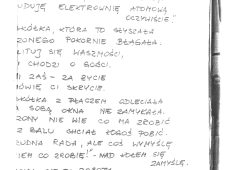 UDUJĘ ELEKTROWNIĘ ATOMOWĄ
OCZYWIŚCIE!
KÓŁKA, KTÓRA TO SŁYSZAŁA
ZONEGO POKORNIE BŁAGAŁA.
LITUJ SIĘ WASZMOŚCI,
CHODZI O GOŚCI.
ZAŚ - ZA ŻYCIE
ÓWIĘ CI SKRYCIE.
KÓŁKA Z PŁACZEM ODLECIAŁA
SOBĄ OKNA NIE ZAMYKAŁA.
ZONY NIE WIE CO MA ZROBIĆ
Z BALU CHCIAŁ KOGOŚ POBIĆ.
UDNA RADA, ALE COŚ WYMYŚLĘ
IEM CO ZROBIĘ!" - NAD
ZAMYŚLĘ.